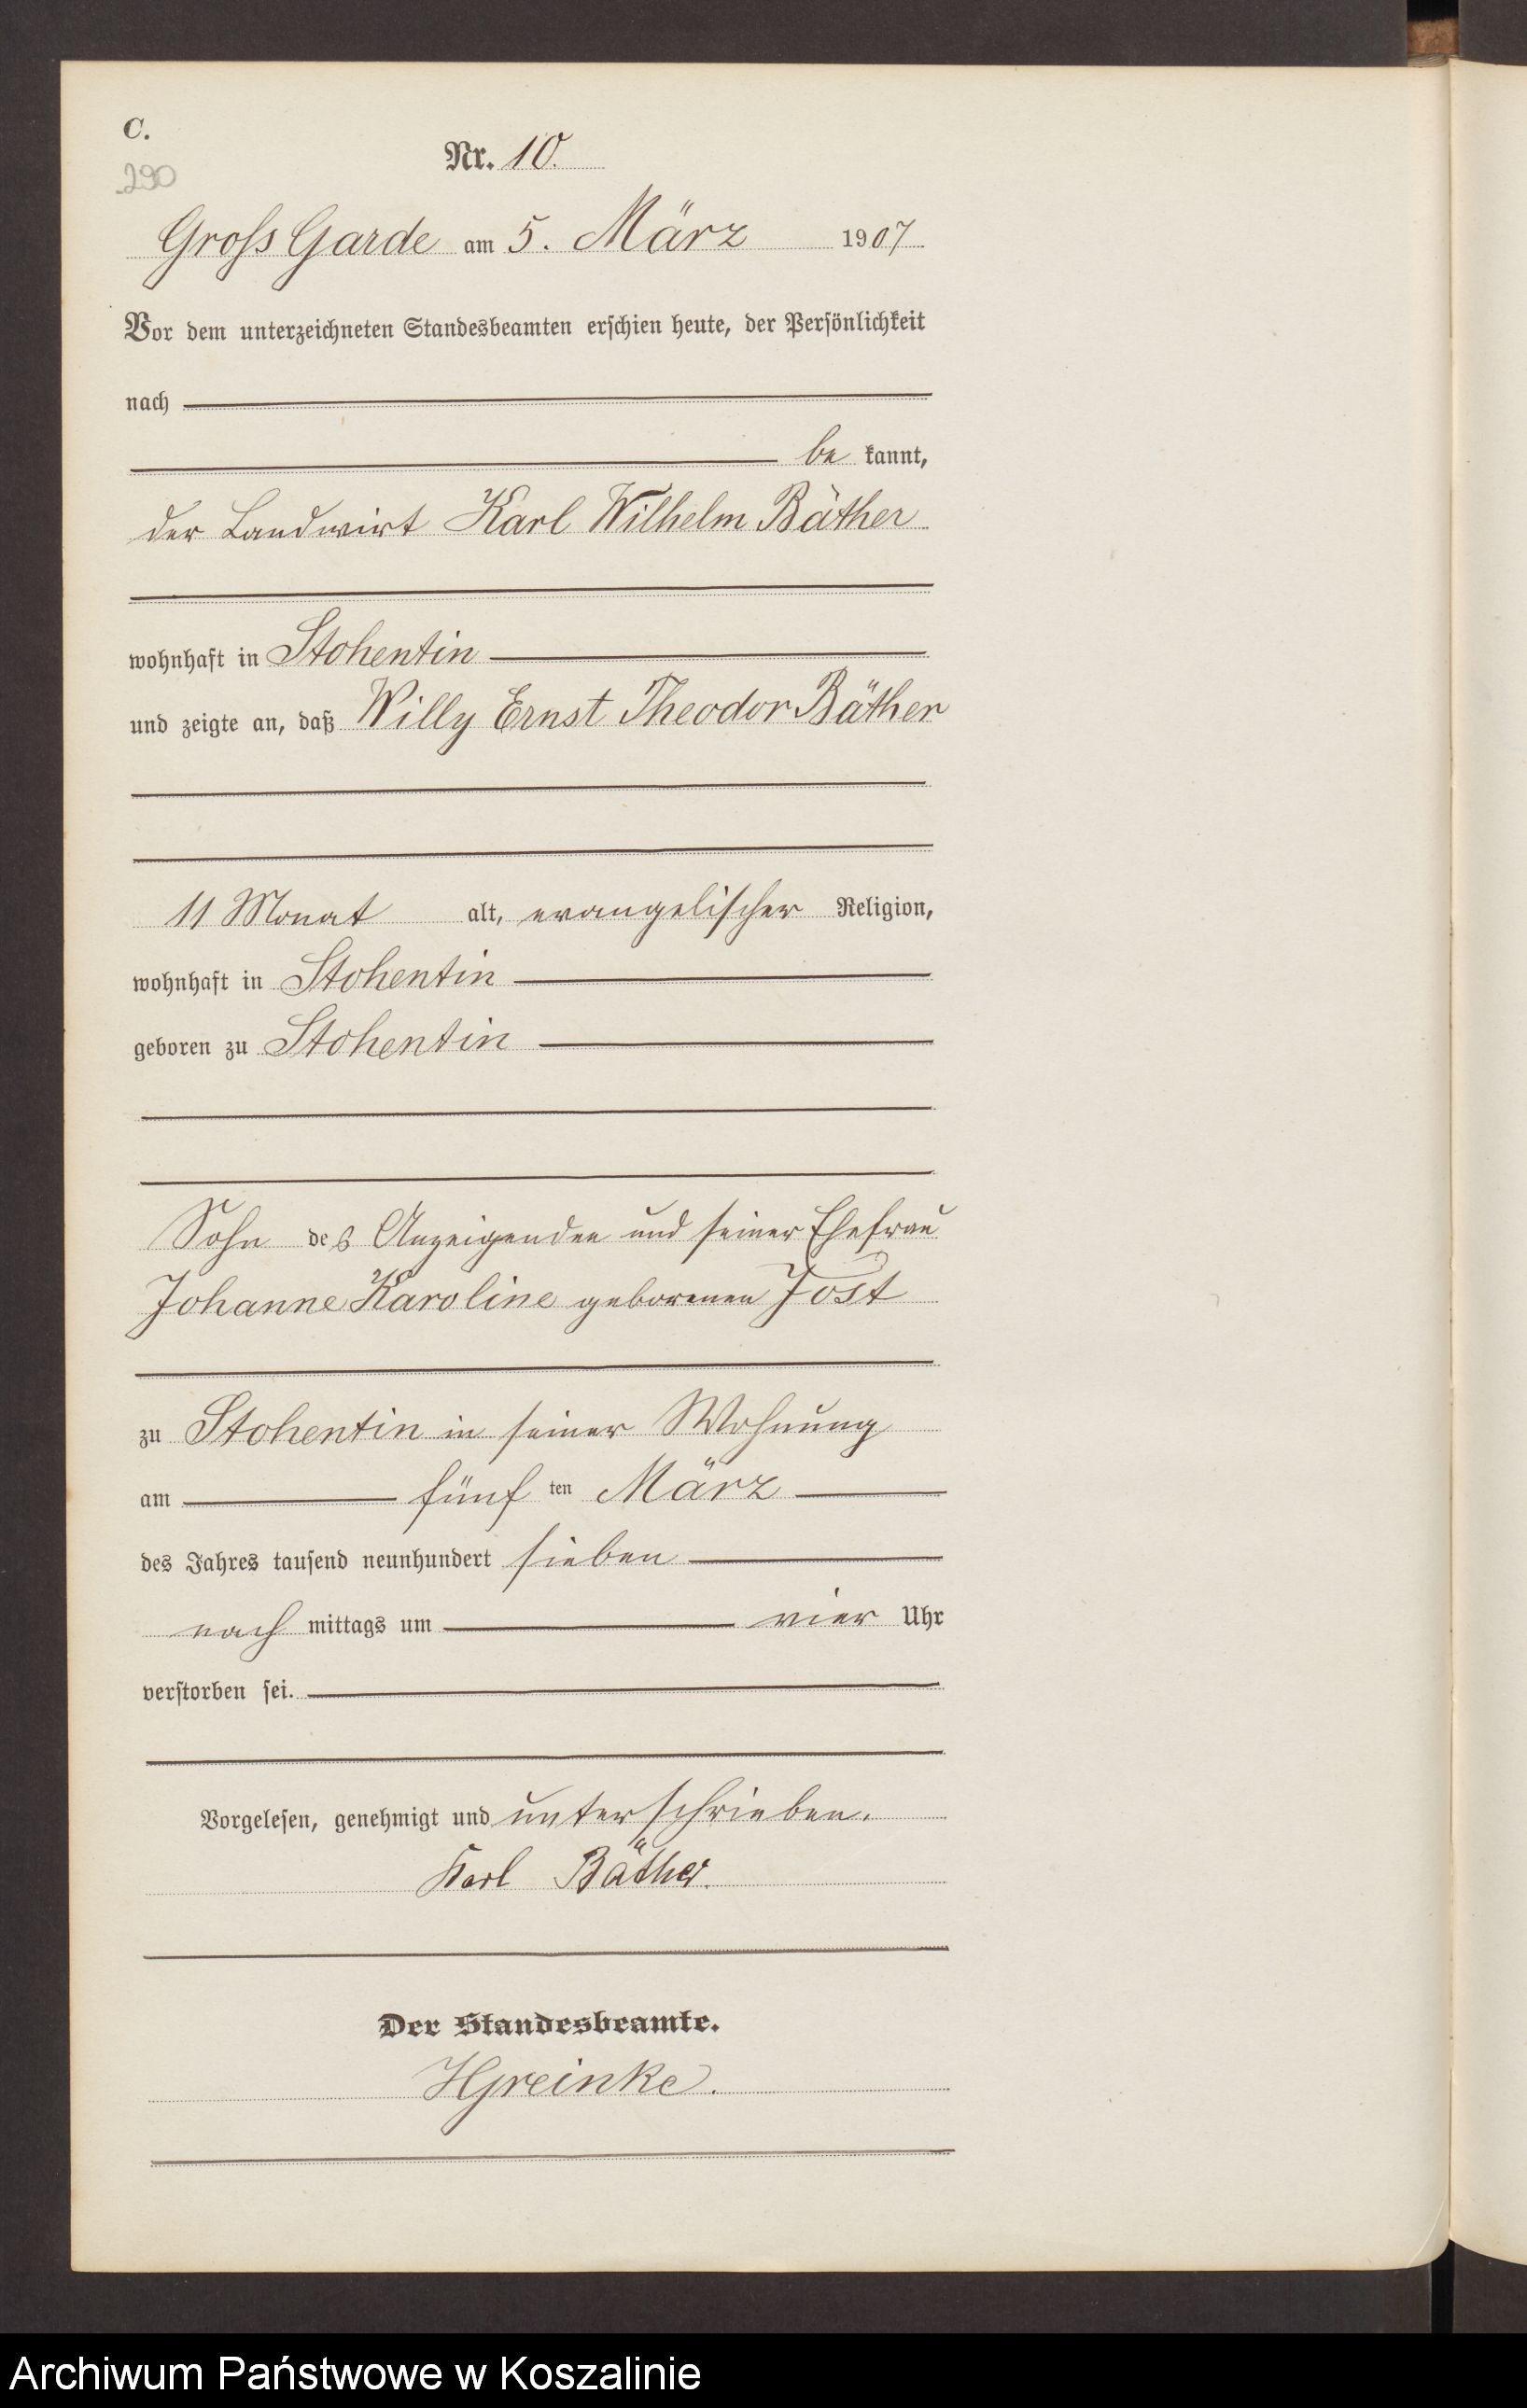 C.
290
Nr. 10.
Gross Garde am 5. März 1907
Vor dem unterzeichneten Standesbeamten erschien heute, der Persönlichkeit
nach
be kannt,
der Landwirt Karl Wilhelm Bäther
wohnhaft in Stohentin
und zeigte an, daß Willy Ernst Theodor Bäther
11 Monat alt, evangelischer Religion,
wohnhaft in Stohentin
geboren zu Stohentin
Sohn des Anzeigenden und seiner Ehefrau
Johanne Karoline geborenen Jost
zu Stohentin in seiner Wohnung
am fünf ten März
des Jahres tausend neunhundert sieben
nach mittags um vier Uhr
verstorben sei.
Vorgelesen, genehmigt und unterschrieben.
Karl Bäther.
Der Standesbeamte.
Archiwum Państwowe w Koszalinie